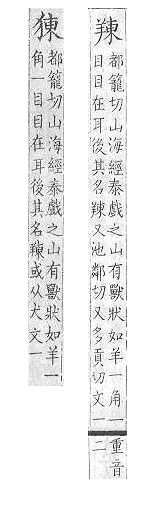 䍶
都籠切山海經泰戲之山有獸狀如羊一角一
目目在耳後其名䍶又池鄰切又多貢切文二
重音
㹍
都籠切山海經泰戲之山有獸狀如羊一
角一目目在耳後其名䍶或从犬文一